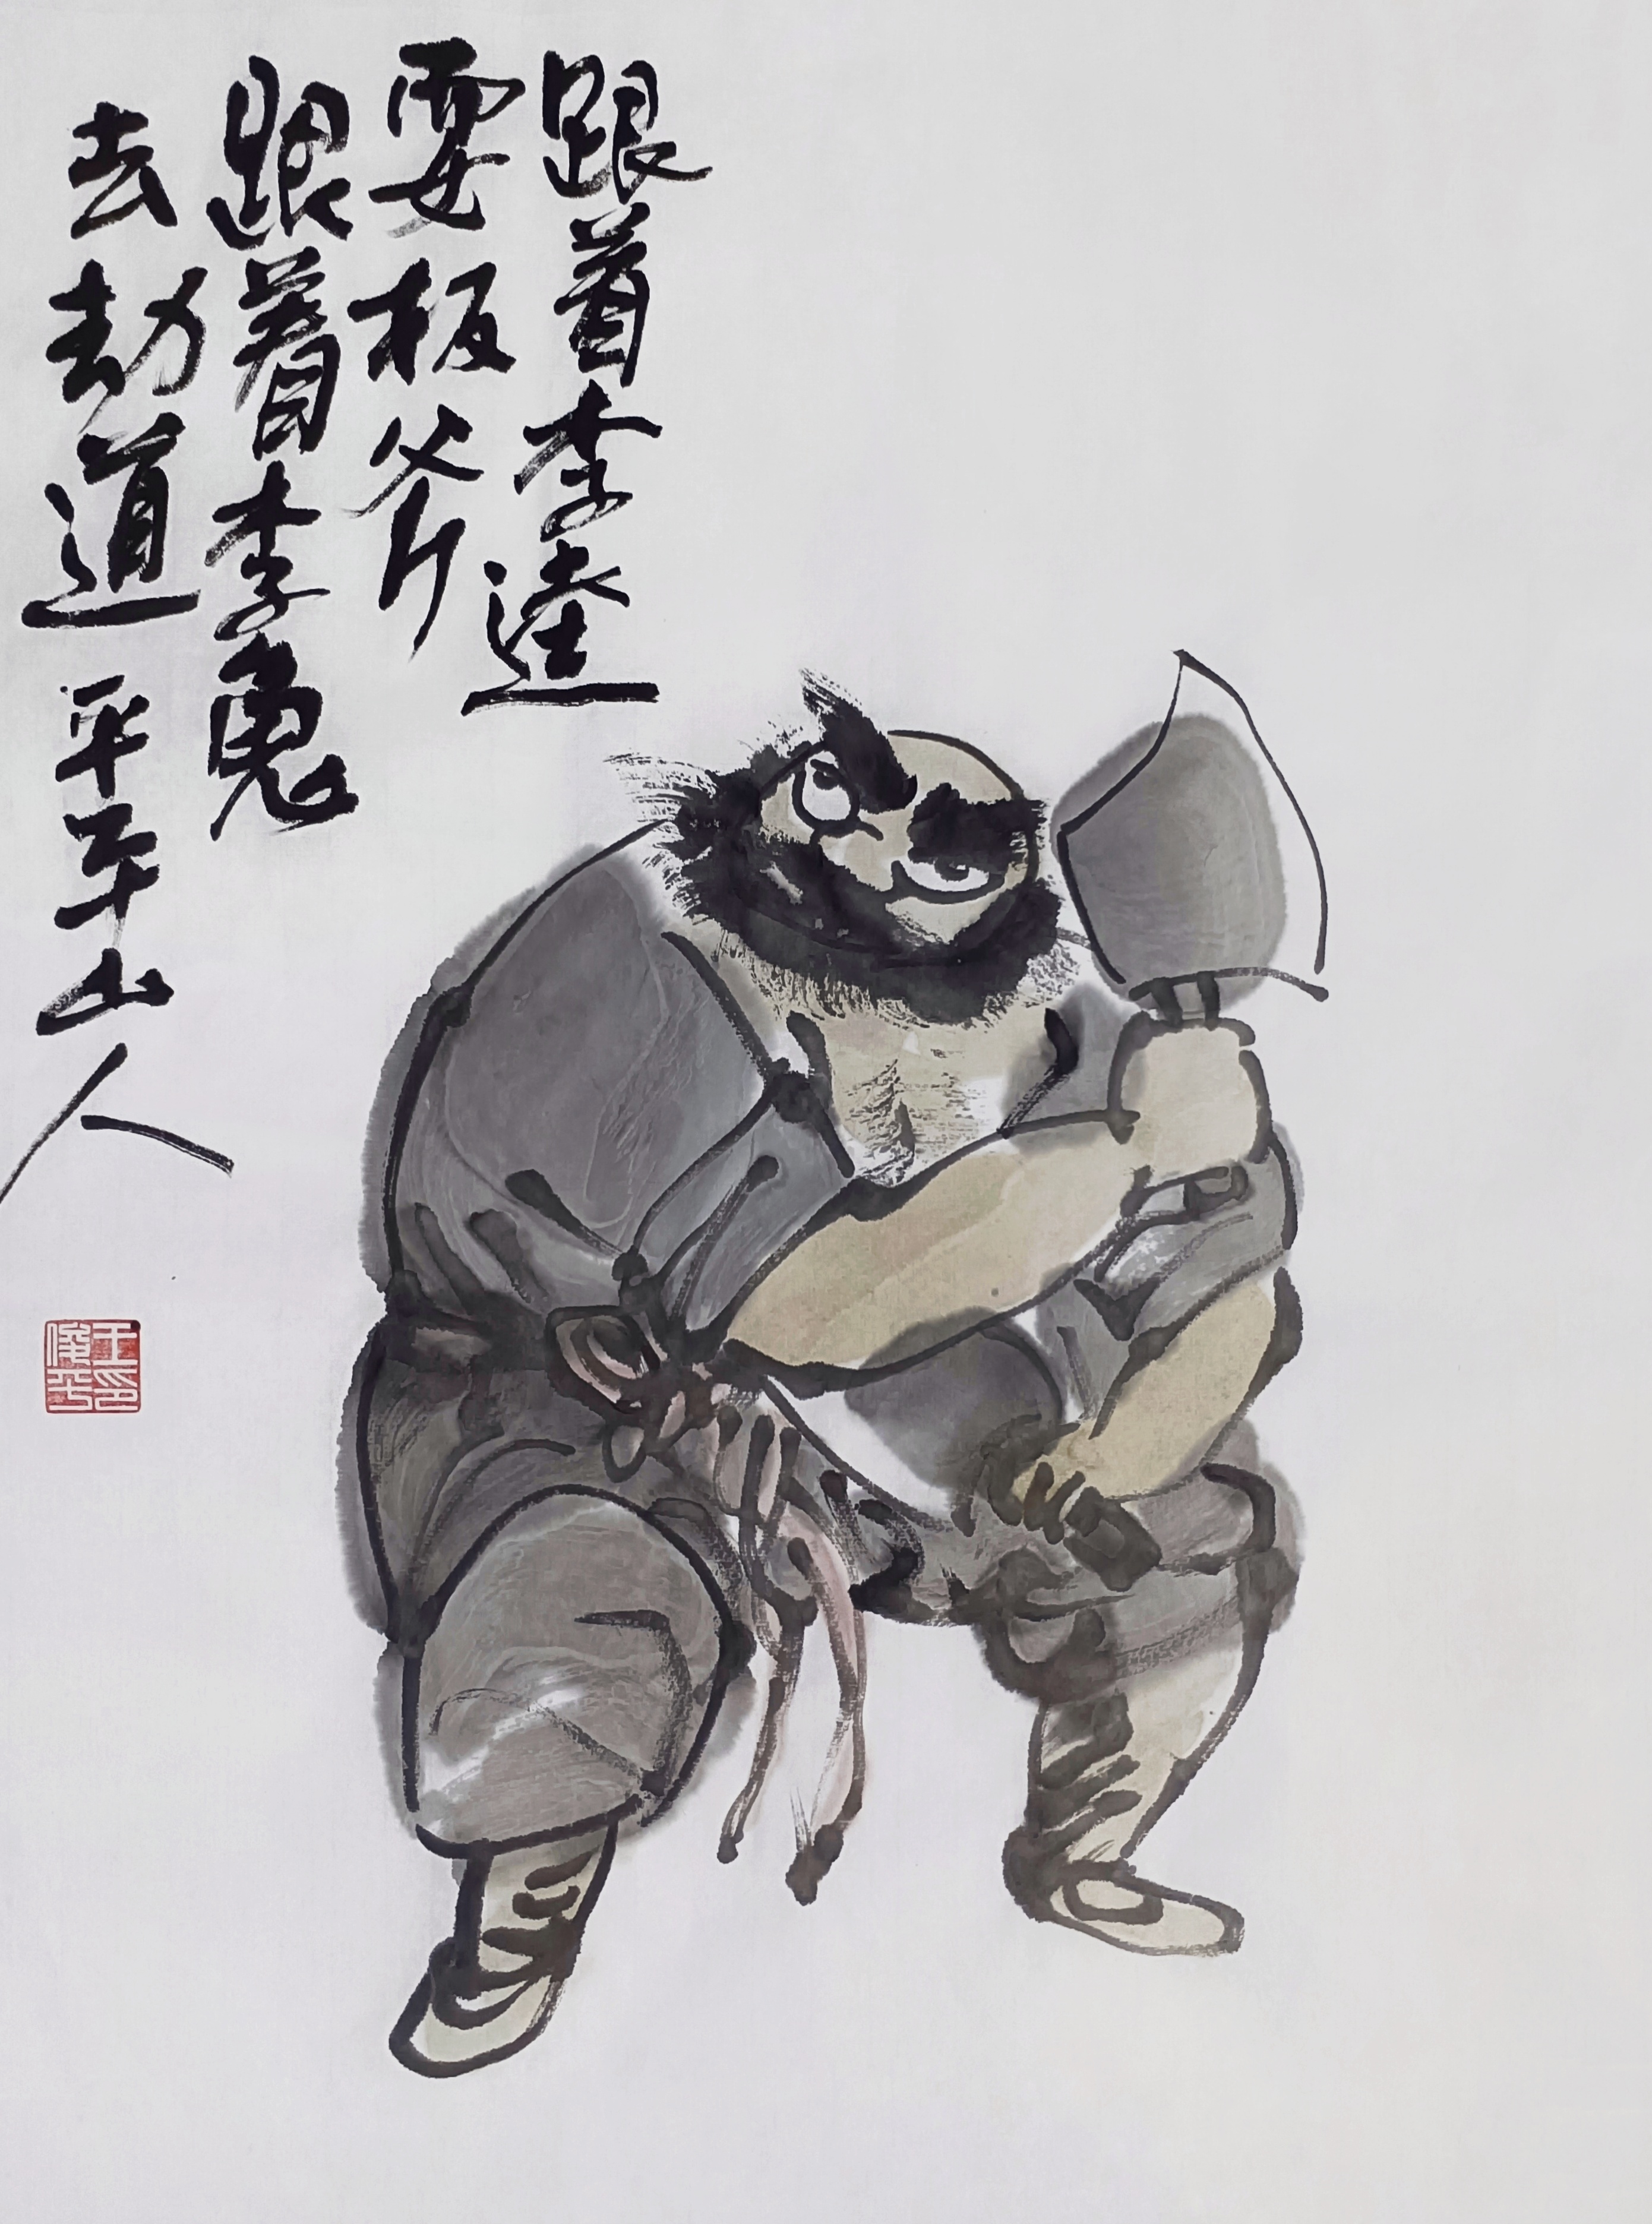 跟着李逵
耍板斧
跟着李鬼
去劫道 平平山人
王印俊平